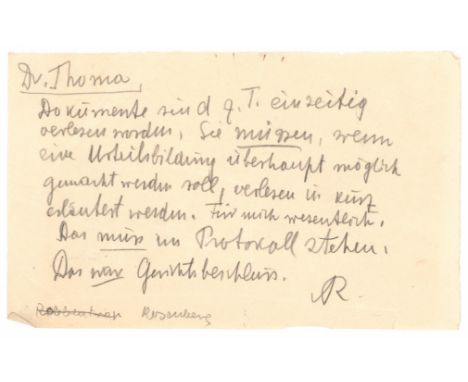 Dr. Thoma,
Dokumente sind z. T. einseitig
verlesen worden. Sie müssen, wenn
eine Urteilsbildung überhaupt möglich
gemacht werden soll, verlesen u. kurz
erläutert werden. Für mich wesentlich.
Das muss im Protokoll stehen.
Das war Gerichtsbeschluss.
AR
Ribbentrop Rosenberg